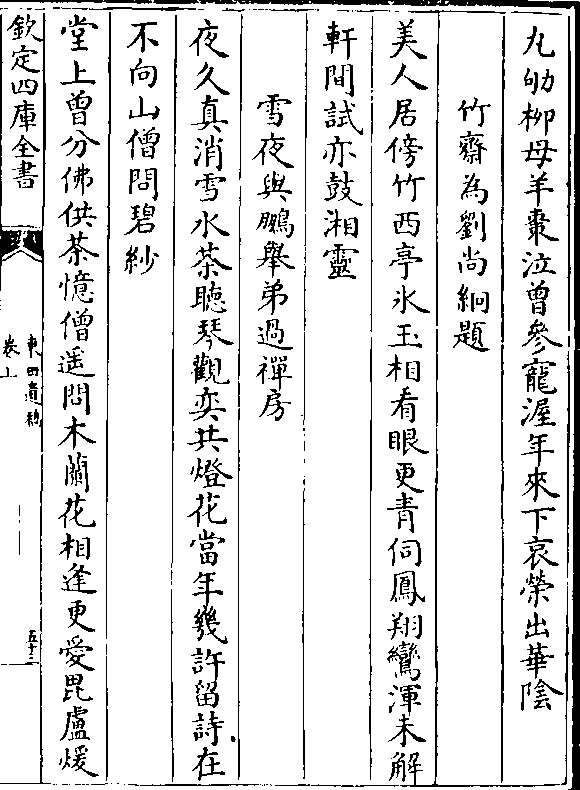 九䧺柳母羊棗泣曾參寵渥年來下哀榮出華陰
竹齋為劉尚絅題
美人居傍竹西亭氷玉相看眼更青伺鳳翔鸞渾未解
軒間試亦鼓湘靈
雪夜與鵬舉弟過禪房
夜久真消雪水茶聴琴觀奕共燈花當年幾許留詩在
不向山僧問碧紗
堂上曾分佛供茶憶僧遥問木蘭花相逢更愛毘盧煖
欽定四庫全書
東田遺稿
卷上
五十二